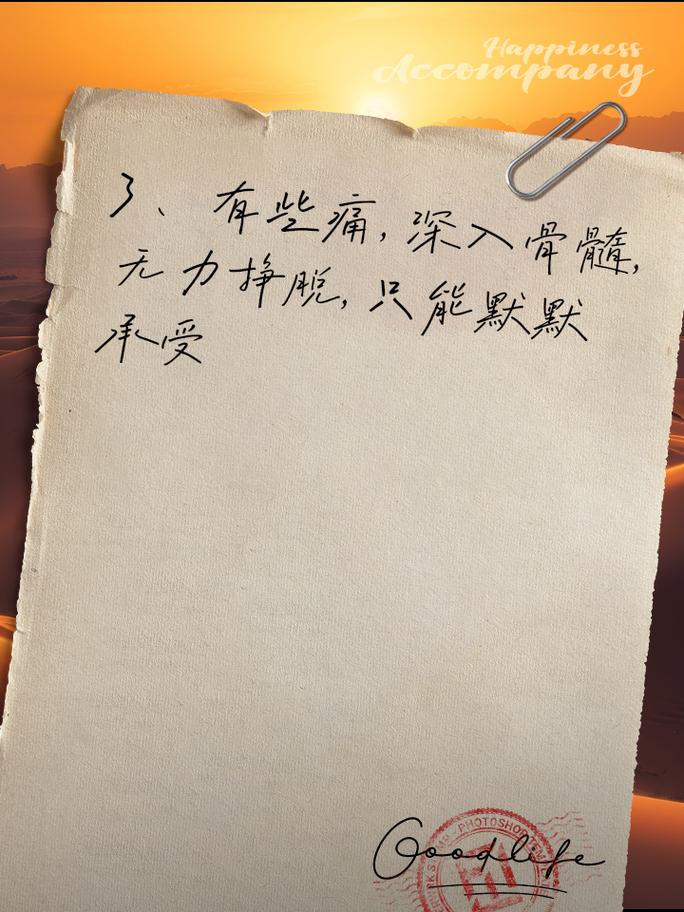 Happiness
Accompany
3、有些痛，深入骨髓，
无力挣脱，只能默默
承受
PHOTOSHOP
Goodlife